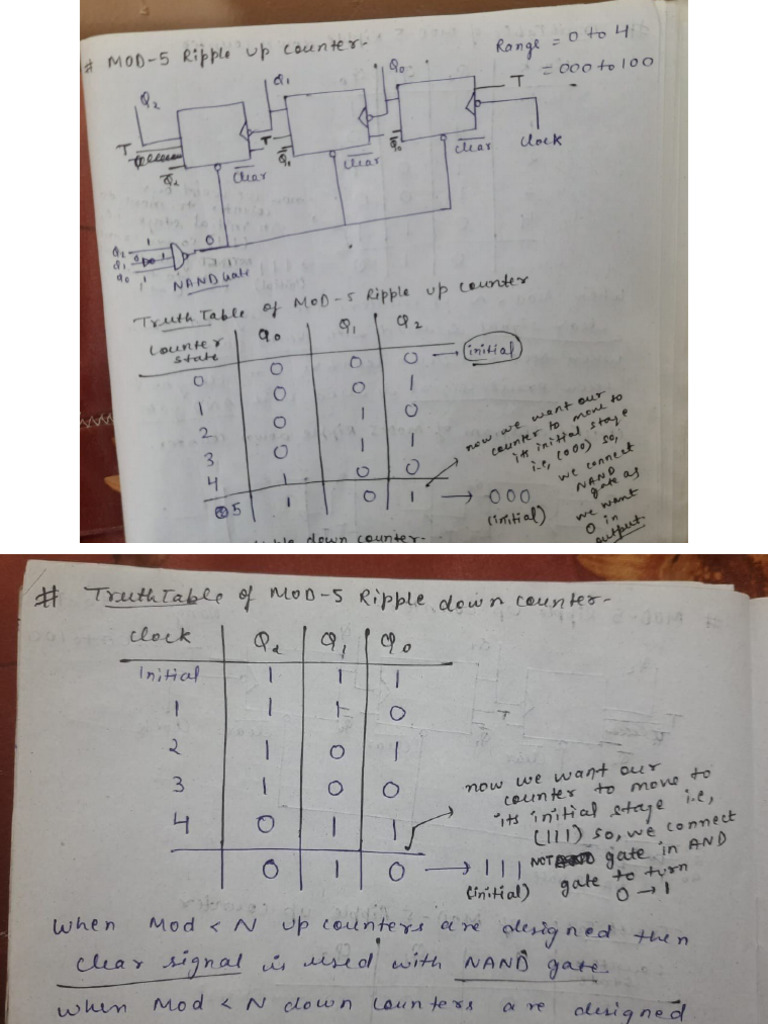 # MOD-5 Ripple up counter-
Range = 0 to 4
= 000 to 100
Q2
Q1
Q0
T
T
T
Q̅2
Q̅1
Q̅0
C̅l̅e̅a̅r̅
C̅l̅e̅a̅r̅
C̅l̅e̅a̅r̅
clock
Q2 1
Q1 0 1
Q0 1
0
NAND Gate
Truth Table of MOD-5 Ripple up counter
counter state | Q0 | Q1 | Q2
0 | 0 | 0 | 0 → initial
1 | 0 | 0 | 1
2 | 0 | 1 | 0
3 | 0 | 1 | 1
4 | 1 | 0 | 0
5 | 1 | 0 | 1 → 000
(initial)
now we want our
counter to move to
its initial stage
i.e, (000) so,
we connect
NAND
gate as
we want
0 in
output.
down counter-
# Truth Table of MOD-5 Ripple down counter-
clock | Q2 | Q1 | Q0
Initial | 1 | 1 | 1
1 | 1 | 1 | 0
2 | 1 | 0 | 1
3 | 1 | 0 | 0
4 | 0 | 1 | 1
0 | 1 | 0 → 111
(initial)
now we want our
counter to move to
its initial stage i.e,
(111) so, we connect
NOT gate in AND
gate to turn
0 → 1
When Mod < N up counters are designed then
clear signal is used with NAND gate
When Mod < N down counters are designed